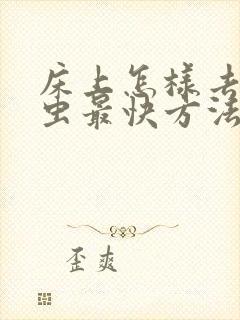 床上怎样去
虫最快方法
歪爽